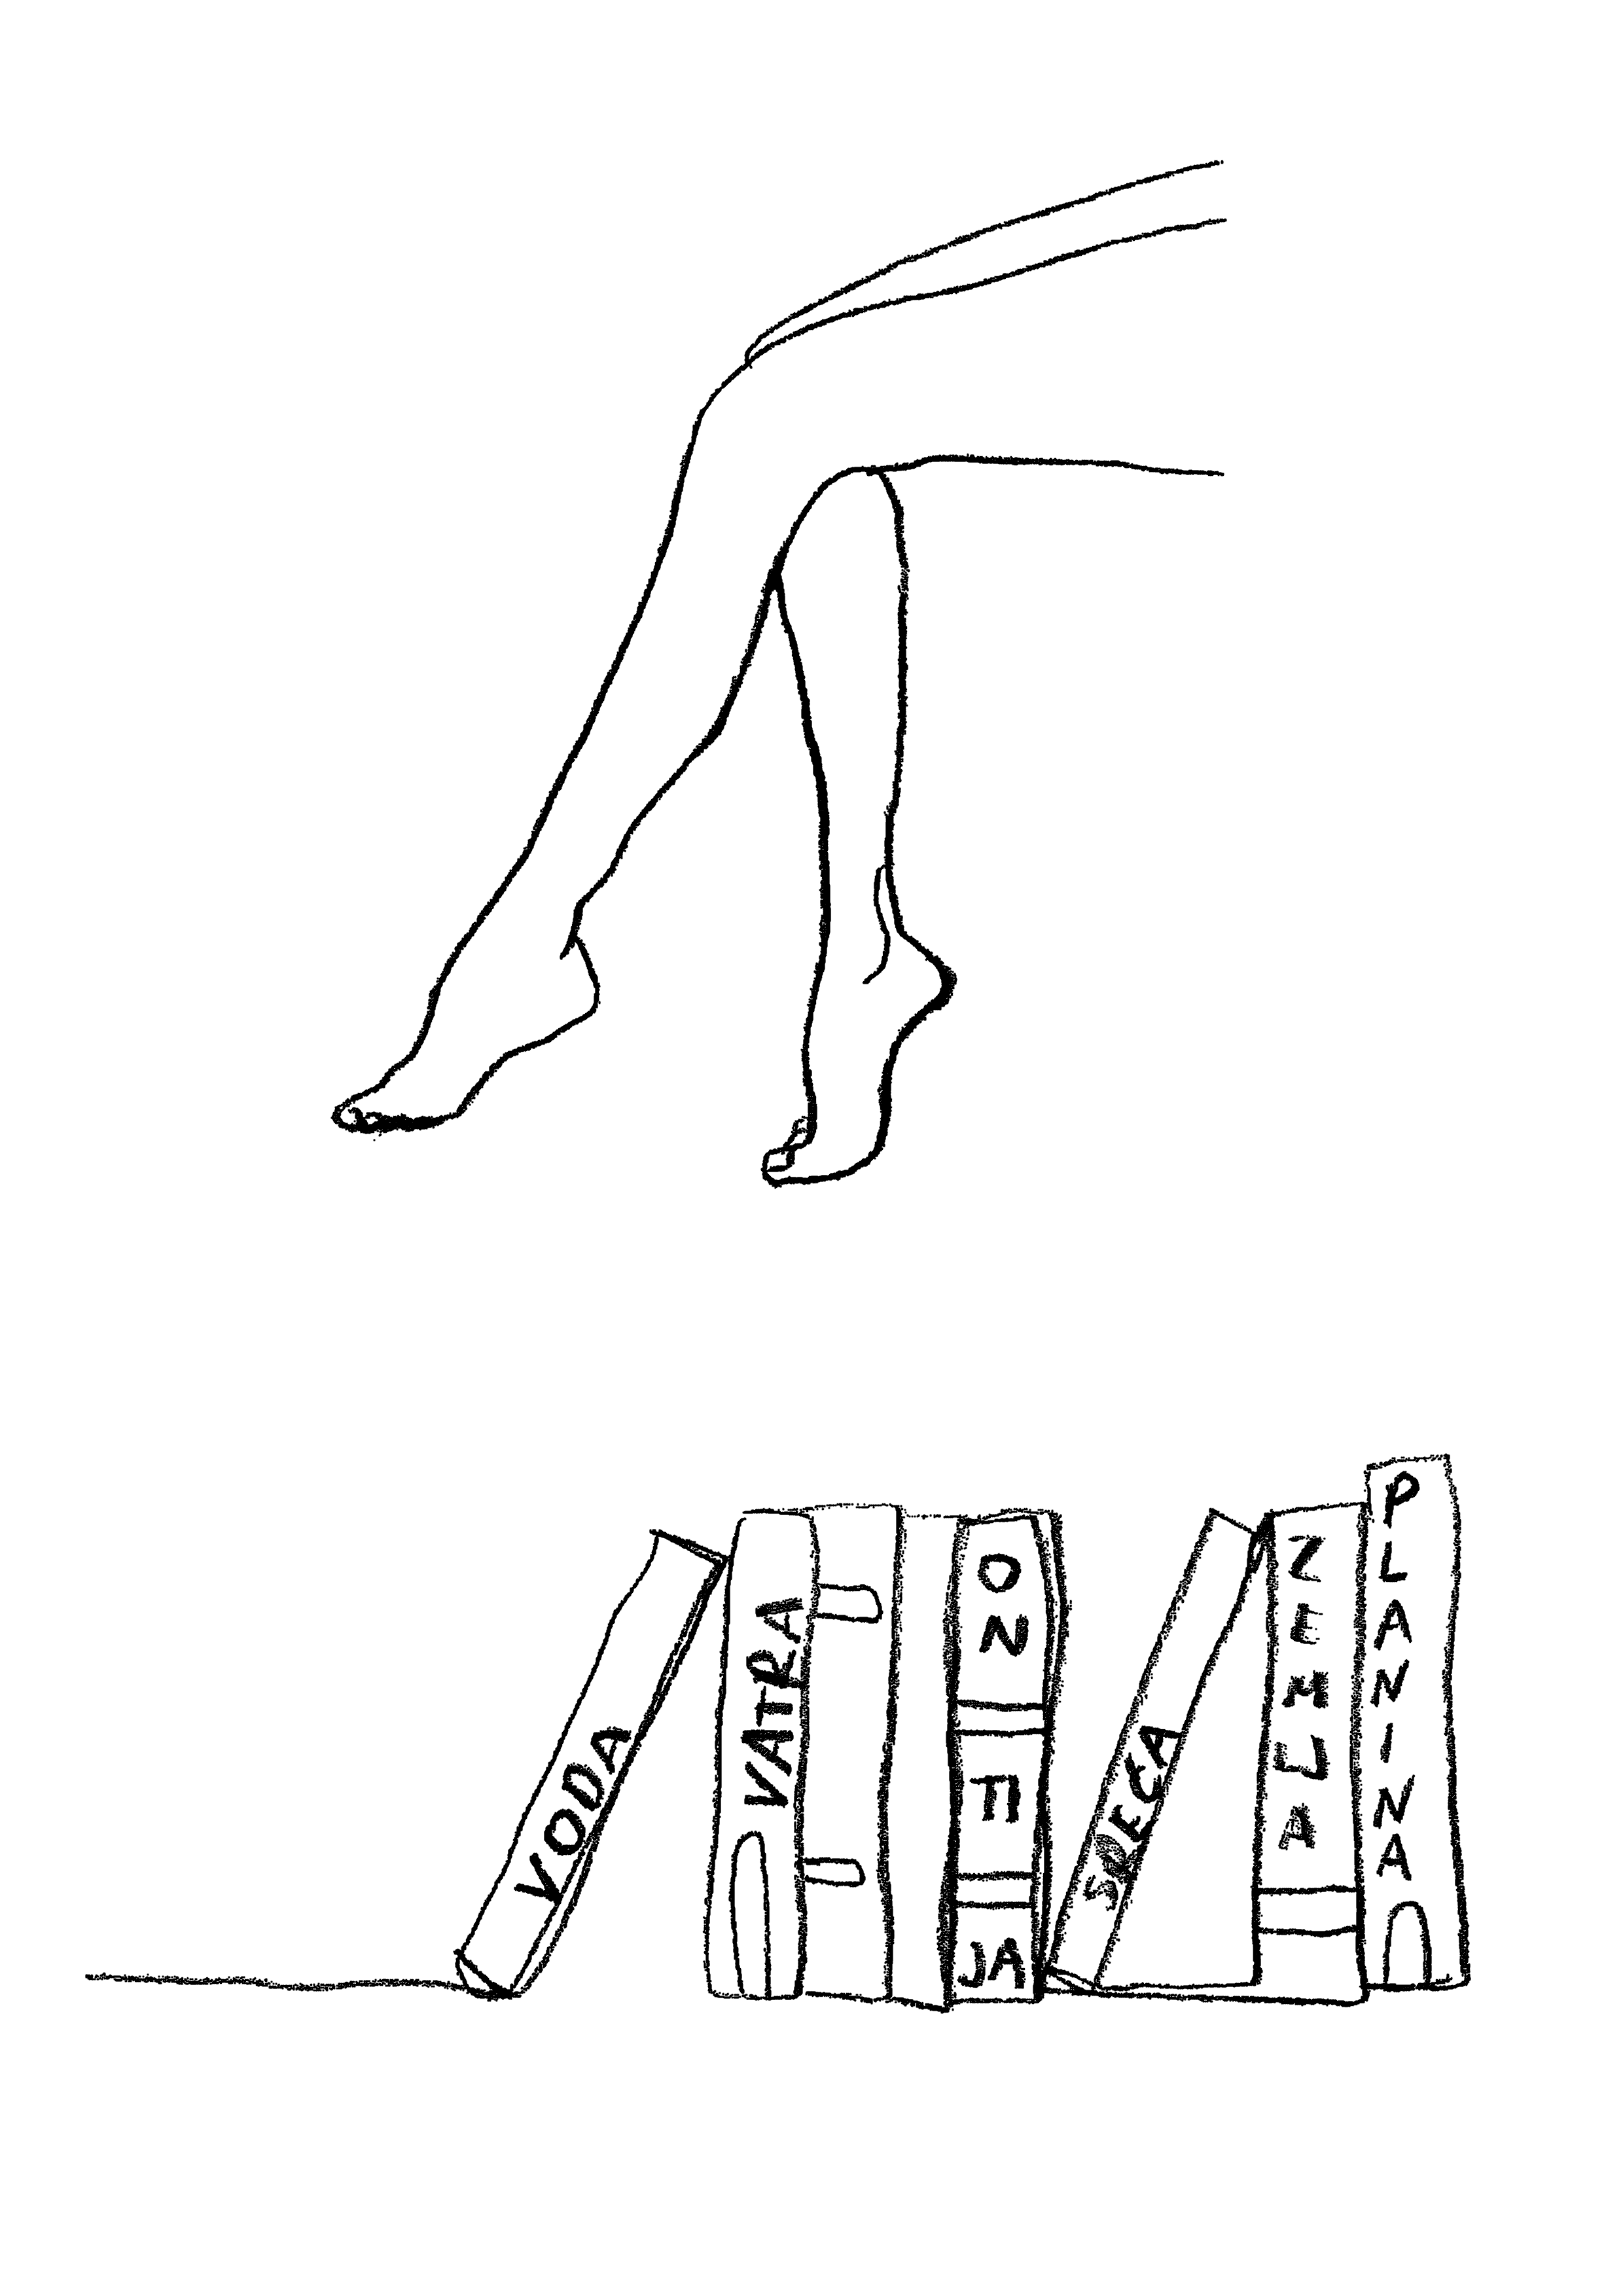 VODA
VATRA
ON
TI
JA
SREĆA
ZEMLJA
PLANINA